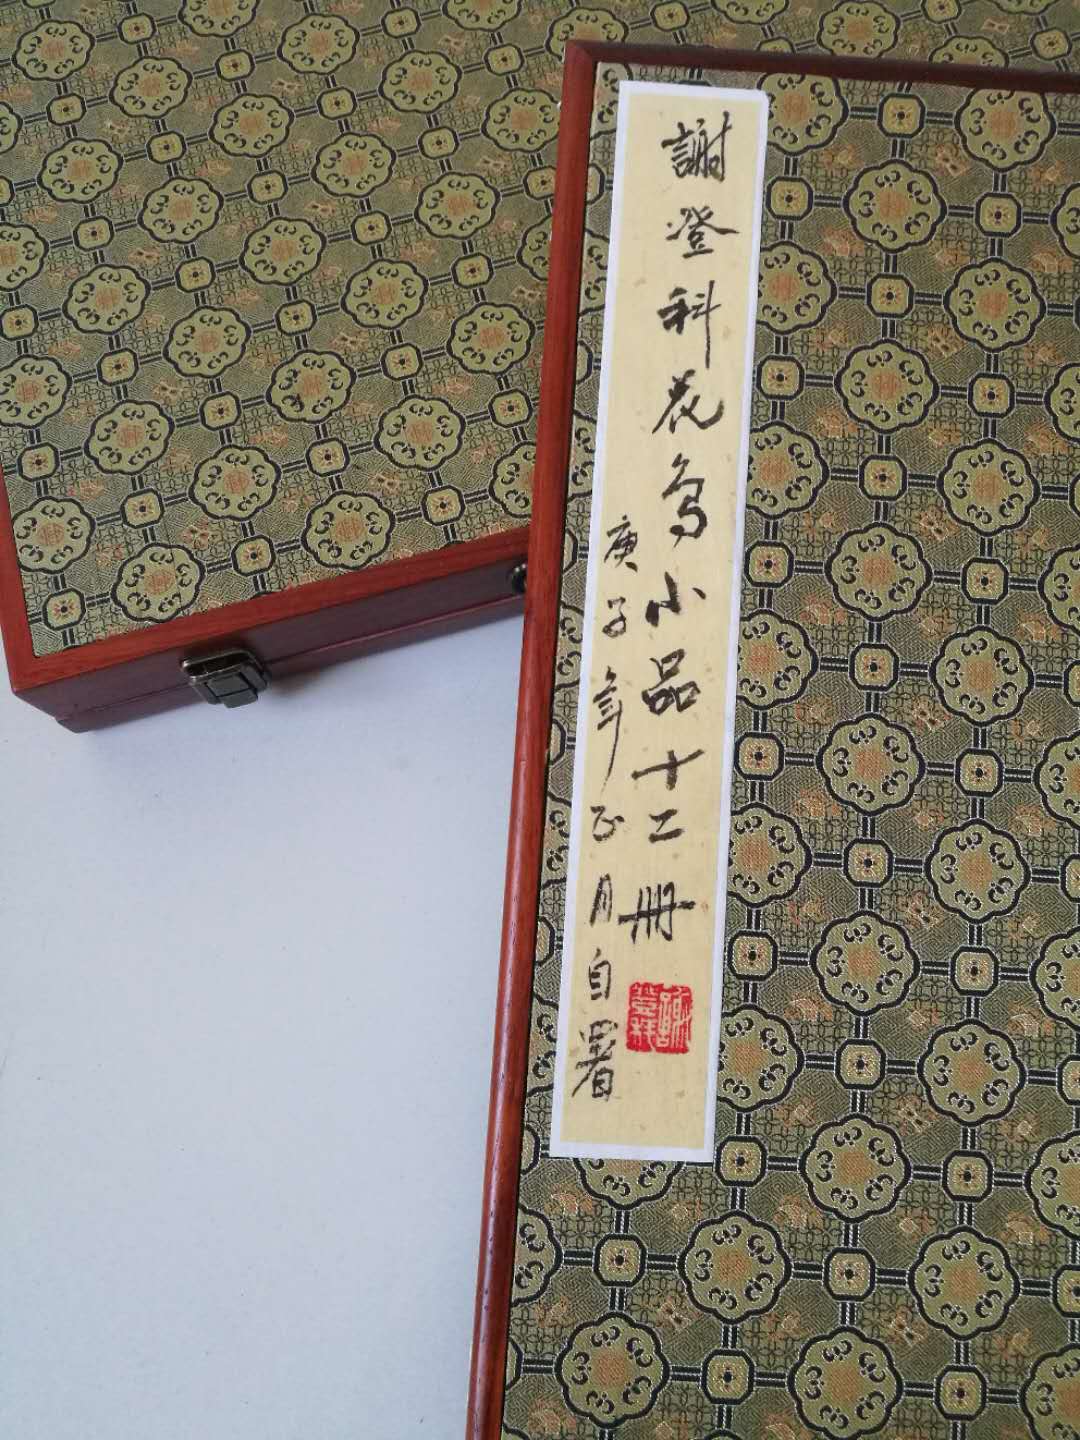 謝登科花鳥小品十二冊
庚子年正月自署
謝登科